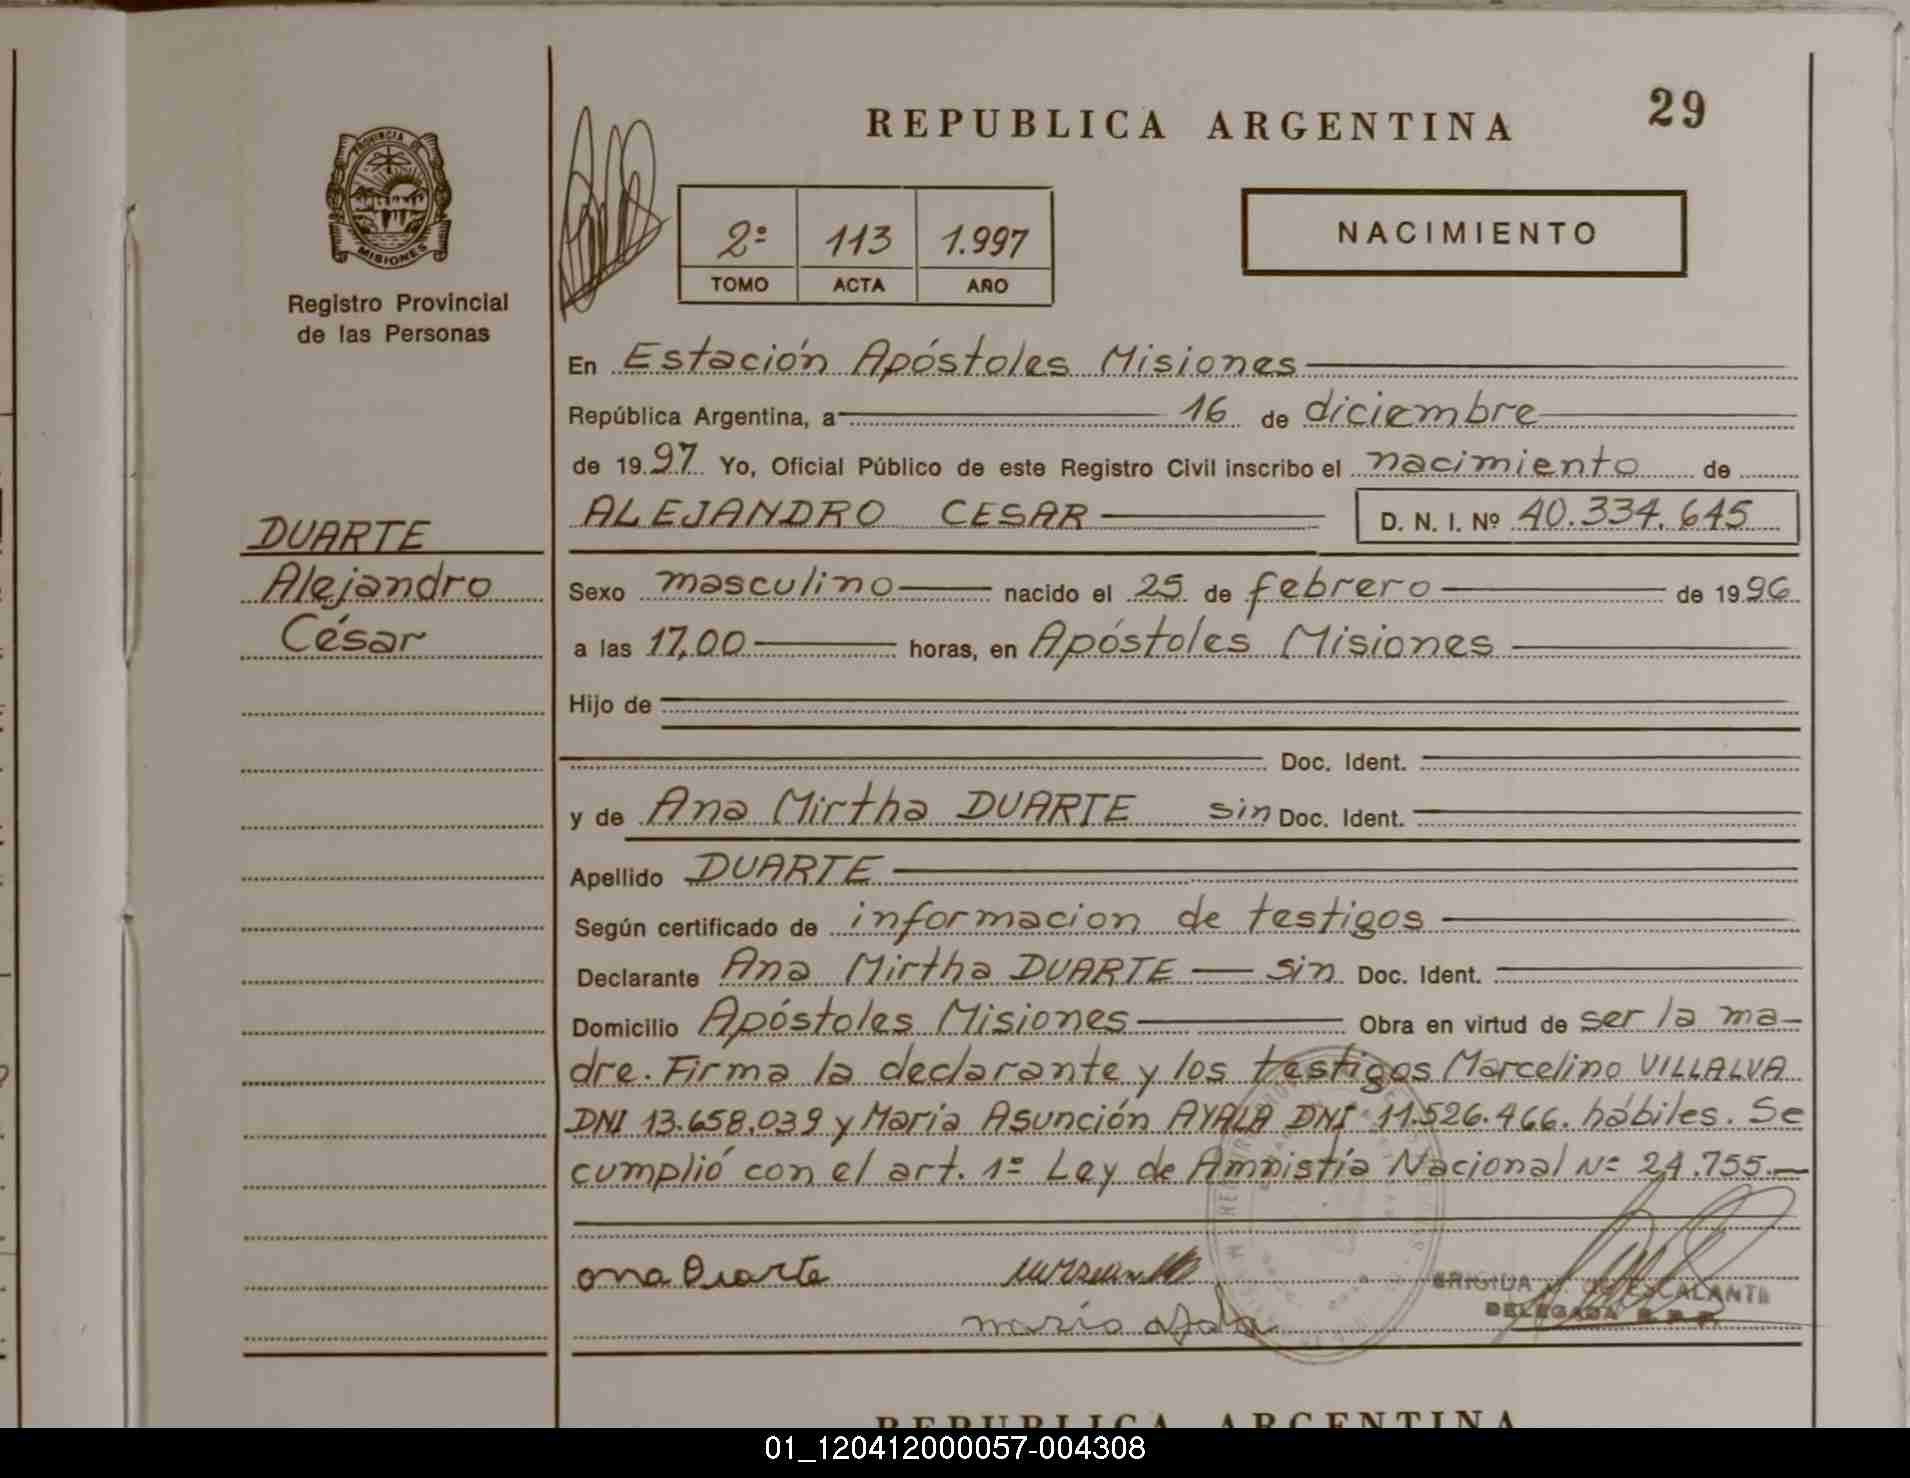 29
REPUBLICA ARGENTINA
PROVINCIA DE
MISIONES
Registro Provincial
de las Personas
2º 113 1.997
TOMO ACTA AÑO
NACIMIENTO
En Estación Apóstoles Misiones
República Argentina, a 16 de diciembre
de 1997 Yo, Oficial Público de este Registro Civil inscribo el nacimiento de
ALEJANDRO CESAR D. N. I. Nº 40.334.645
DUARTE
Alejandro
César
Sexo masculino nacido el 25 de febrero de 1996
a las 17,00 horas, en Apóstoles Misiones
Hijo de
Doc. Ident.
y de Ana Mirtha DUARTE sin Doc. Ident.
Apellido DUARTE
Según certificado de informacion de testigos
Declarante Ana Mirtha DUARTE sin Doc. Ident.
Domicilio Apóstoles Misiones Obra en virtud de ser la ma-
dre. Firma la declarante y los testigos Marcelino VILLALVA
DNI 13.658.039 y María Asunción AYALA DNI 11.526.466. hábiles. Se
cumplió con el art. 1º Ley de Amnistía Nacional Nº 24.755.-
ana Duarte
maria ayala
BRIGIDA DE ESCALANTE
DELEGADA R.P.P.
REPUBLICA ARGENTINA
01_120412000057-004308